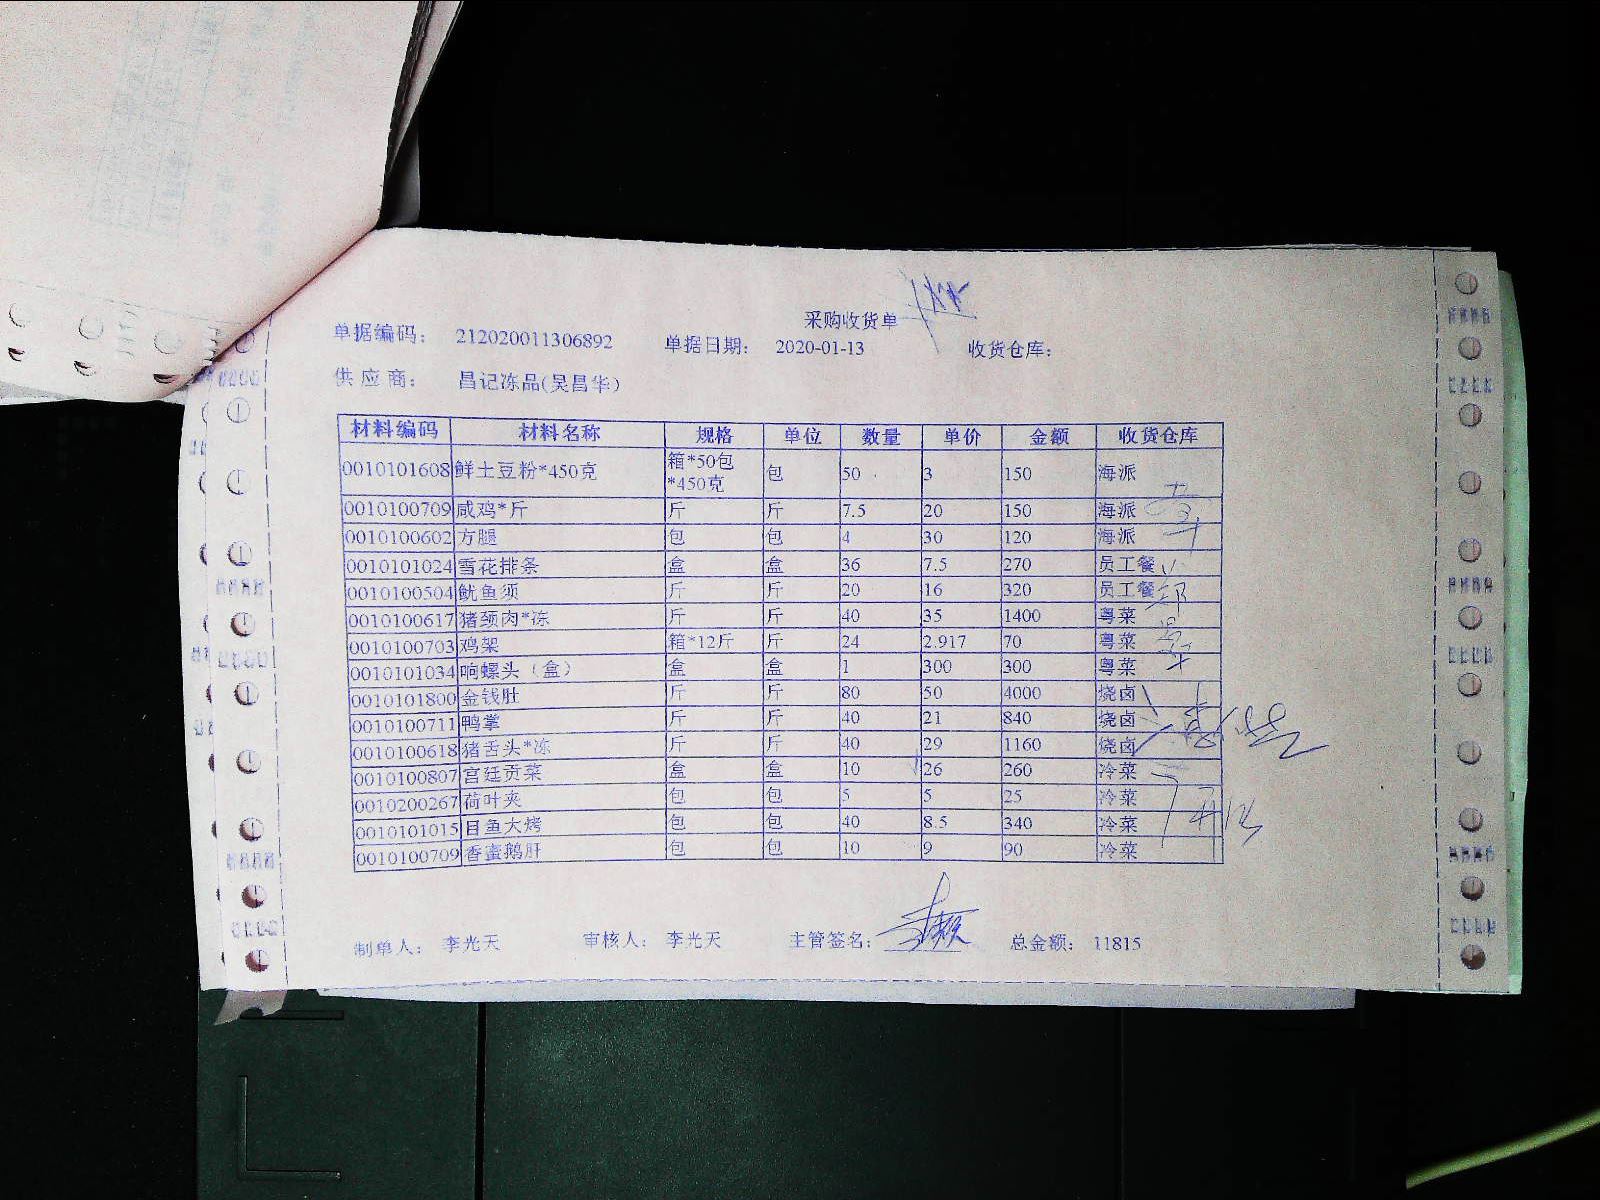 采购收货单
单据编码： 212020011306892 单据日期： 2020-01-13 收货仓库：
供 应 商： 昌记冻品(吴昌华)
材料编码 材料名称 规格 单位 数量 单价 金额 收货仓库
0010101608 鲜土豆粉*450克 箱*50包*450克 包 50 3 150 海派
0010100709 咸鸡*斤 斤 斤 7.5 20 150 海派
0010100602 方腿 包 包 4 30 120 海派
0010101024 雪花排条 盒 盒 36 7.5 270 员工餐
0010100504 鱿鱼须 斤 斤 20 16 320 员工餐
0010100617 猪颈肉*冻 斤 斤 40 35 1400 粤菜
0010100703 鸡架 箱*12斤 斤 24 2.917 70 粤菜
0010101034 响螺头（盒） 盒 盒 1 300 300 粤菜
0010101800 金钱肚 斤 斤 80 50 4000 烧卤
0010100711 鸭掌 斤 斤 40 21 840 烧卤
0010100618 猪舌头*冻 斤 斤 40 29 1160 烧卤
0010100807 宫廷贡菜 盒 盒 10 26 260 冷菜
0010200267 荷叶夹 包 包 5 5 25 冷菜
0010101015 目鱼大烤 包 包 40 8.5 340 冷菜
0010100709 香蜜鹅肝 包 包 10 9 90 冷菜
制单人： 李光天 审核人： 李光天 主管签名： 总金额： 11815